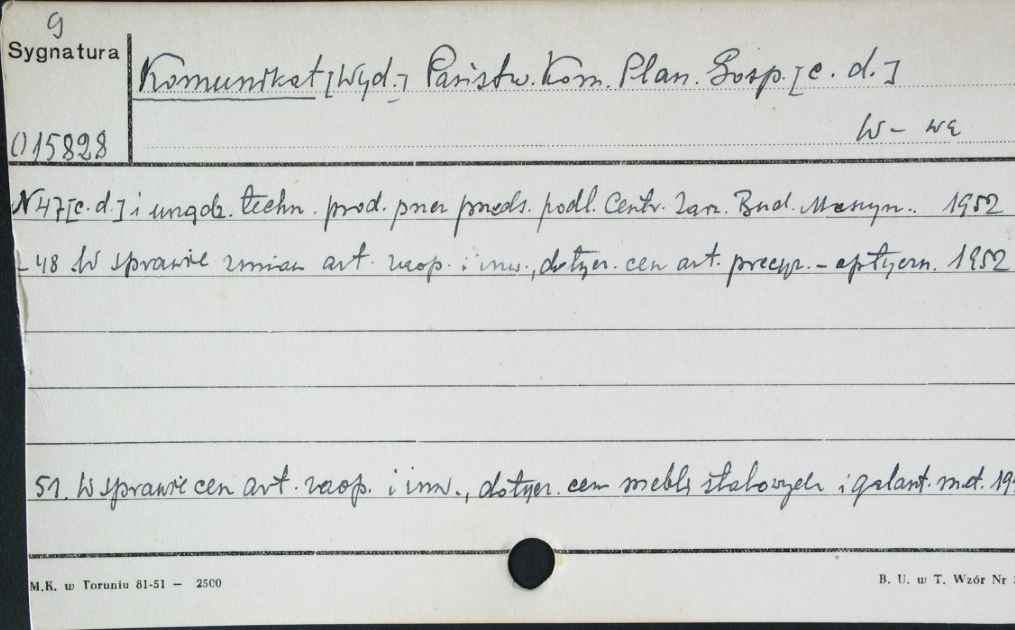 9
Sygnatura
Komunikat [Wyd.] Państw. Kom. Plan. Gosp. [c. d.]
W-wa
015828
N 47 [c. d.] i urządz. techn. prod. przez przeds. podl. Centr. Zarz. Bud. Maszyn. 1952
- 48 W sprawie zmian art. zaop. i inw., dotycz. cen art. precyz. - optyczn. 1952
51. W sprawie cen art. zaop. i inw., dotycz. cen mebli stalowych i galant. met. 19
M.K. w Toruniu 81-51 — 2500
B. U. w T. Wzór Nr